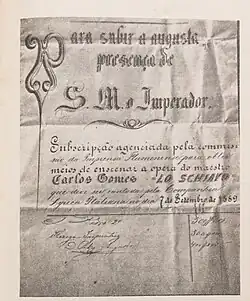 Para subir a augusta
presença de
S. M. o Imperador.
Subscripção agenciada pela commis
são da Imprensa Fluminense para obter
meios de enscenar a opera do maestro
Carlos Gomes - LO SCHIAVO
que deve ser cantada pela Companhia
Lyrica Italiana no dia 7 de Setembro de 1889